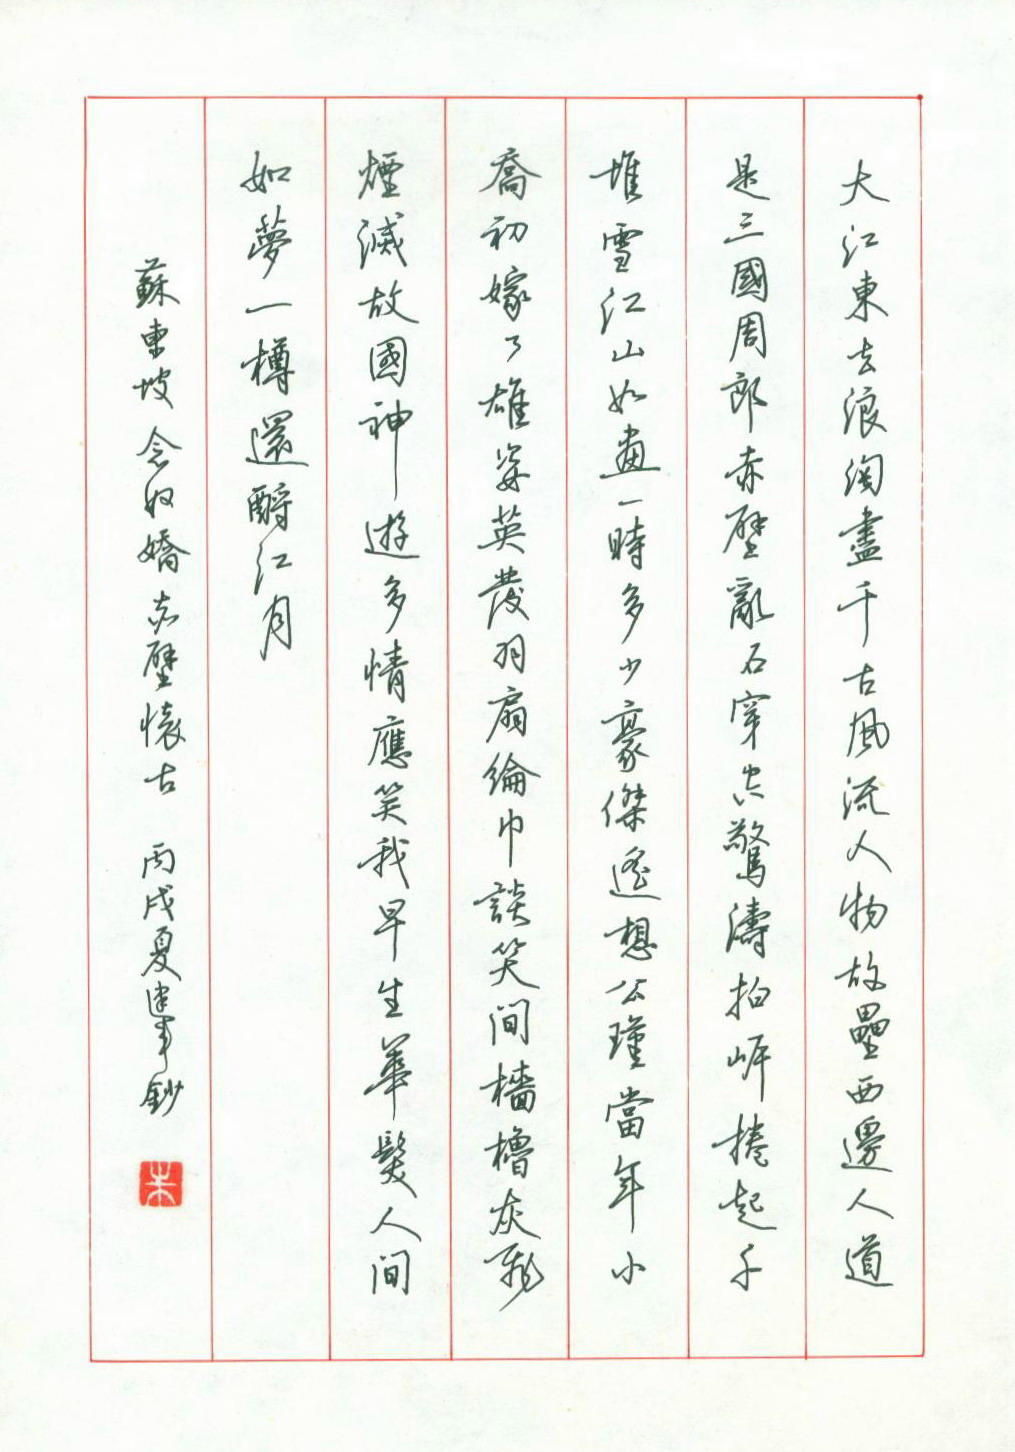 大江東去浪淘盡千古風流人物故壘西邊人道
是三國周郎赤壁亂石穿空驚濤拍岸捲起千
堆雪江山如畫一時多少豪傑遙想公瑾當年小
喬初嫁了雄姿英發羽扇綸巾談笑間檣櫓灰飛
煙滅故國神遊多情應笑我早生華髮人間
如夢一樽還酹江月
蘇東坡 念奴嬌赤壁懷古 丙戌夏建軍鈔
朱